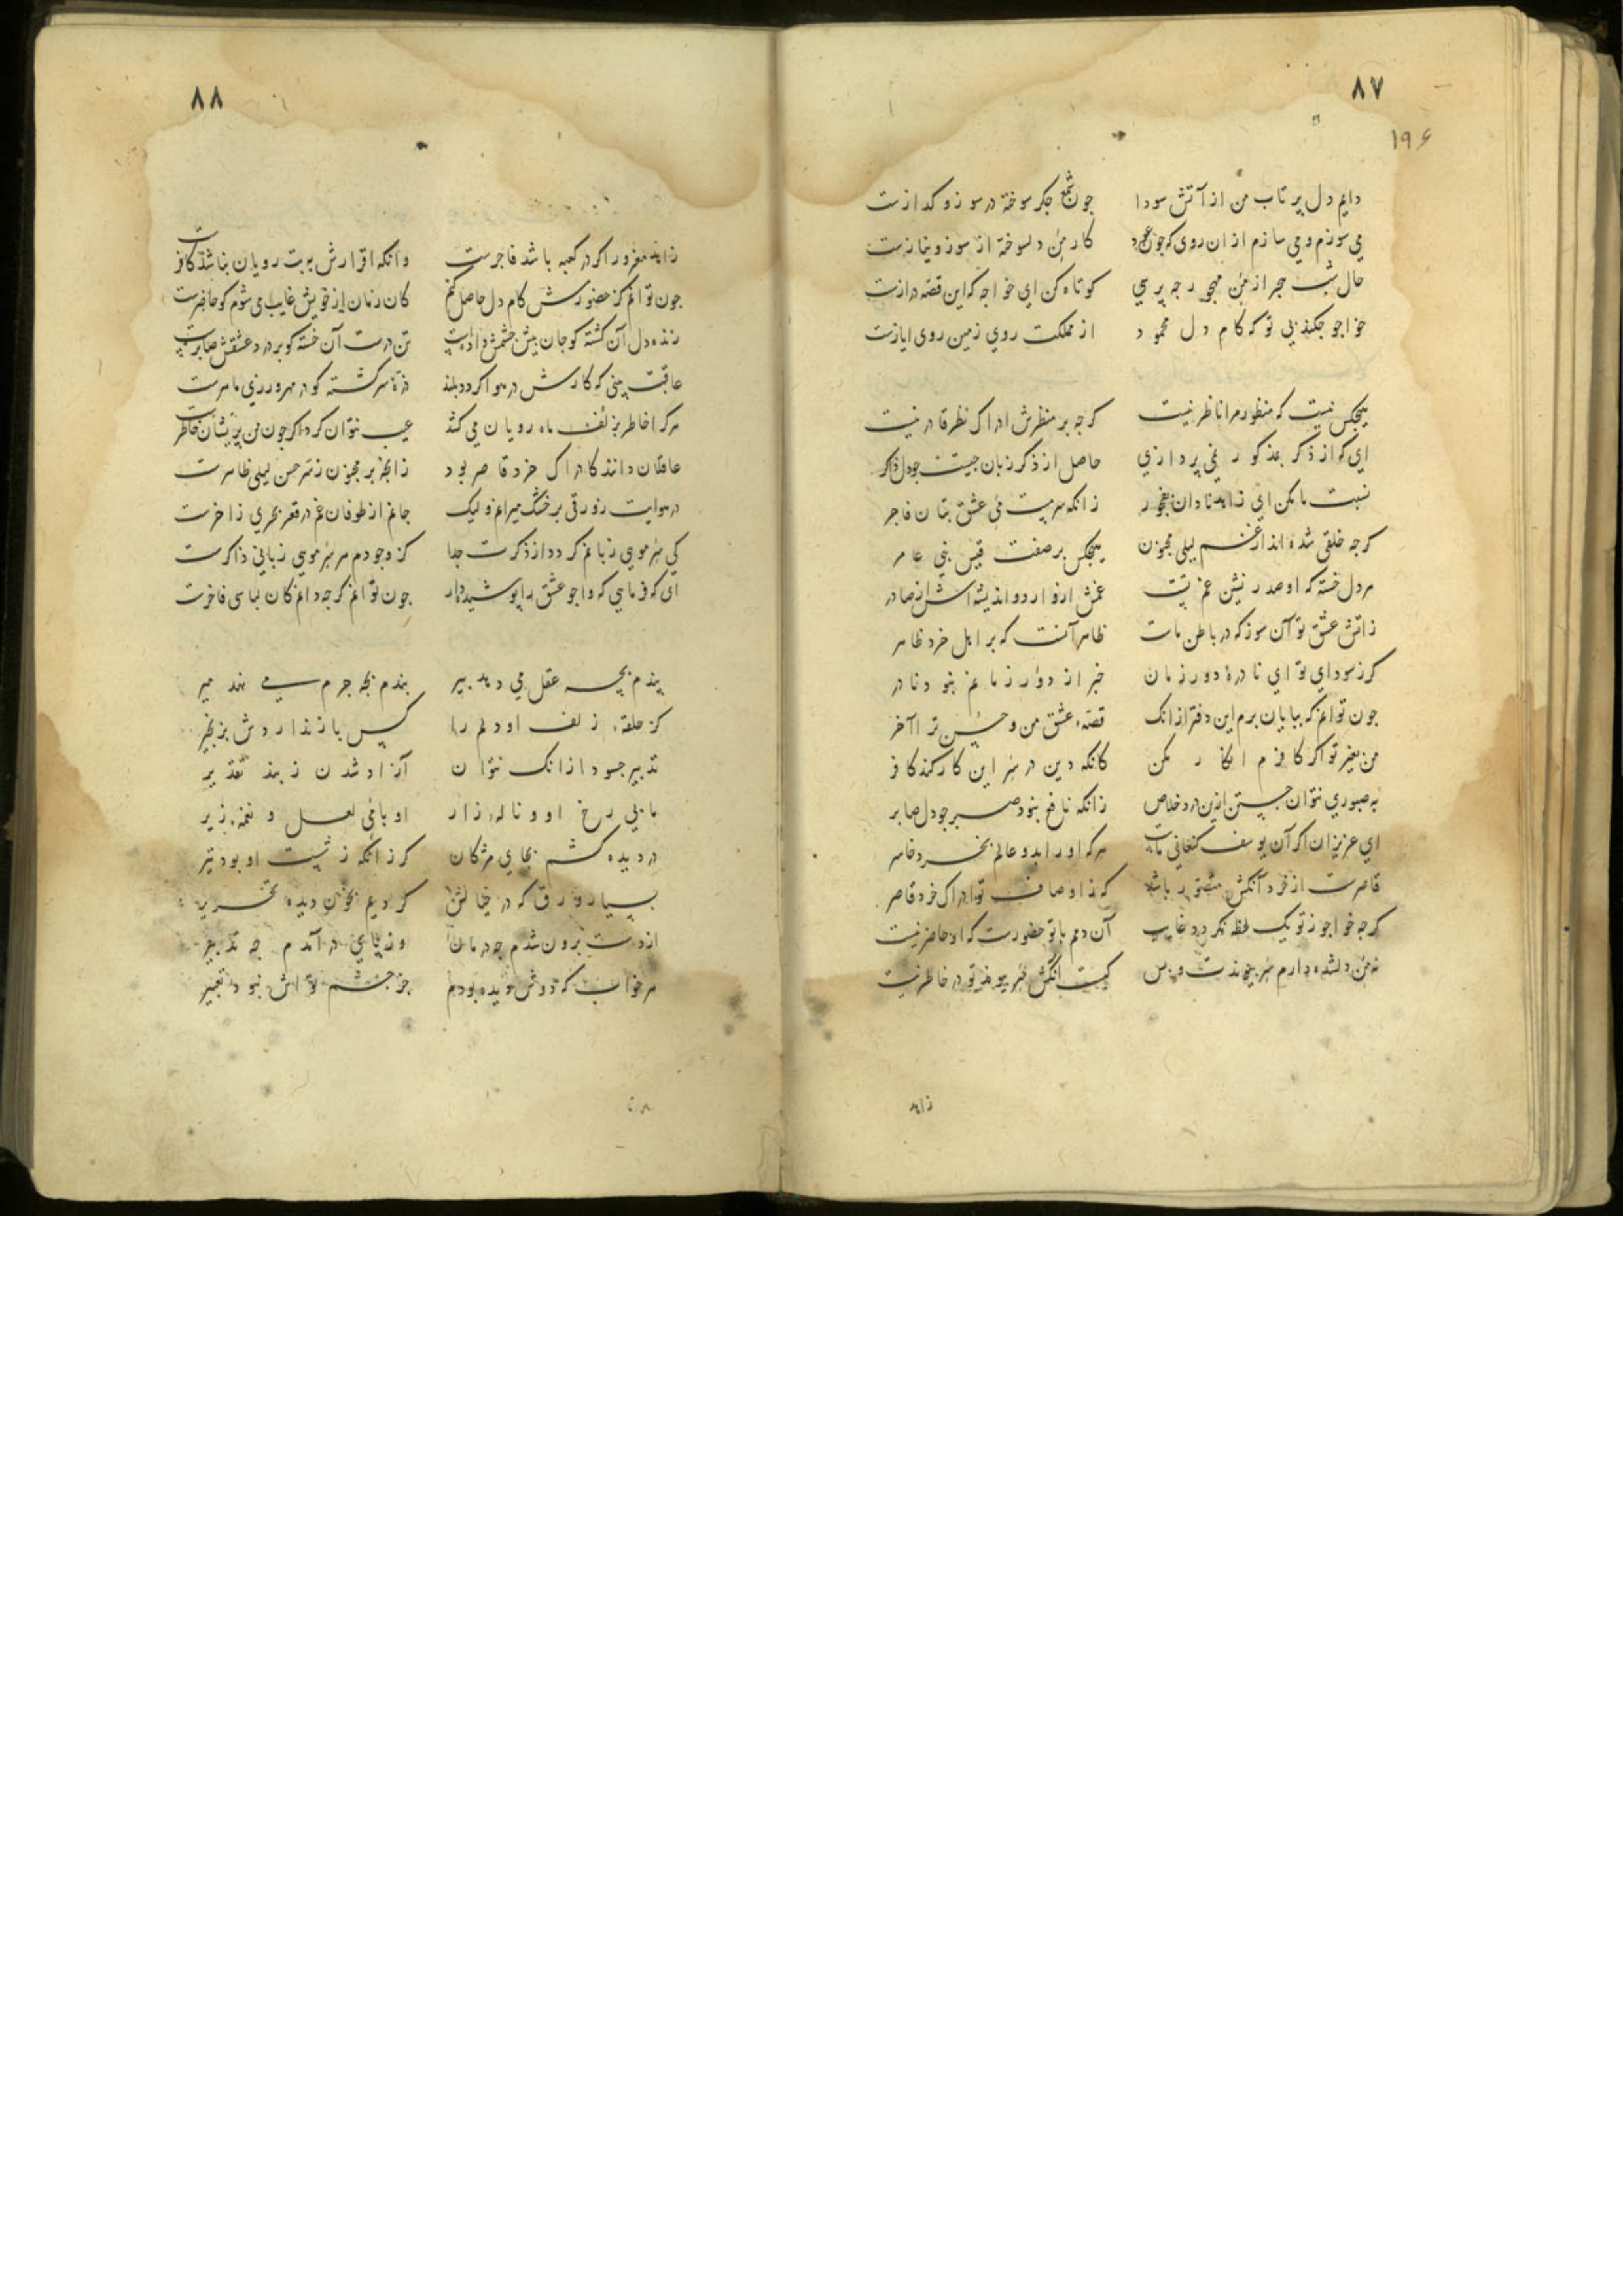 ۸۷
۱۹۶
دایم دل پر تاب من از آتش سودا جون شمع جکر سوخته در سوز و کدازست
می سوزم و می سازم از ان روی که جون عود کار من دلسوخته از سوز و نیازست
حال شب هجر از من مهجور جه پرسی کوتاه کن ای خواجه که این قصه درازست
خواجو جکند بی تو که کام دل محمود از مملکت روی زمین روی ایازست
هیجکس نیست که منظور مرا ناظر نیست کرجه بر منظرش ادراک نظر قادر نیست
ای که از ذکر بمذکور نمی پردازی حاصل از ذکر زبان جیست جو دل ذاکر
نسبت ما مکن ای زاهد نادان بفجور زانکه سرمست می عشق بتان فاجر
کرجه خلقی شده اند از غم لیلی مجنون هیجکس بر صفت قیس بنی عامر
هر دل خسته که او صدر نشین غم تست غمش از وارد و اندیشه اش از صادر
زاتش عشق تو آن سوز که در باطن ماست ظاهر آنست که بر اهل خرد ظاهر
کر ز سودای تو ای نادرهٔ دور زمان خبر از دور زمانم نبود نادر
جون توانم که بپایان برم این دفتر از انک قصهٔ عشق من و حسن ترا آخر
من بغیر تو اکر کافرم انکار مکن کانکه دین در سر این کار کند کافر
به صبوری نتوان جستن ازین درد خلاص زانکه نافع نبود صبر جو دل صابر
ای عزیزان اکر آن یوسف کنعانی ماست هر که او را بدو عالم بخرد خاسر
قاصرست از خرد آنکش متصور باشد که ز اوصاف تو ادراک خرد قاصر
کرجه خواجو ز تو یک لحظه نکردد غایب آن دمم با تو حضورست که او حاضر نیست
نه من دلشده دارم سر پیوندت و بس کیست آنکش سر پیوند تو در خاطر نیست
زاهد
۸۸
زاهد مغرور اکر در کعبه باشد فاجرست وانکه اقرارش به بت رویان نباشد کافرست
جون توانم کز حضورش کام دل حاصل کنم کان زمان از خویش غایب می شوم کو حاضرست
زنده دل آن کشته کو جان پیش جشمش دادست تن درست آن خسته کو بر درد عشقش صابرست
عاقبت بینی که کارش در هوا کردد بلند ذرهٔ سرکشته کو در مهرورزی ماهرست
هر کرا خاطر بزلف ماه رویان می کشد عیب نتوان کرد اکر جون من پریشان خاطرست
عاقلان دانند کادراک خرد قاصر بود زانجه بر مجنون ز سر حسن لیلی ظاهرست
در هوایت زورقی بر خشک میرانم ولیک جانم از طوفان غم در قعر بحری زاخرست
کی سر مویی زبانم کردد از ذکرت جدا کز وجودم هر سر مویی زبانی ذاکرست
ای که فرمایی که خواجو عشق را پوشیده دار جون توانم کرجه دانم کان لباسی فاخرست
پندم بجه عقل می دهد پیر بندم بجه جرم می نهد میر
کز حلقهٔ زلف او دلم را کس باز ندارد ش بزنجیر
تدبیر جسود از انک نتوان آزاد شدن ز بند تقدیر
ما بی رخ او و نالهٔ زار او با می لعل و نغمهٔ زیر
در دیده کشم بجای مژکان کر زانکه ز شست او بود تیر
بسیار ورق که در خیالش کردیم بخون دیده تحریر
از دست برون شدم جه درمان وز پای در آمدم جه تدبیر
هر خواب که دوش دیده بودم جز جشم تواش نبود تعبیر